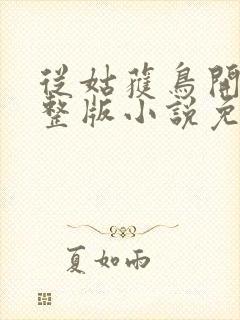 從姑蘿鳥開
整版小說免
夏如雨